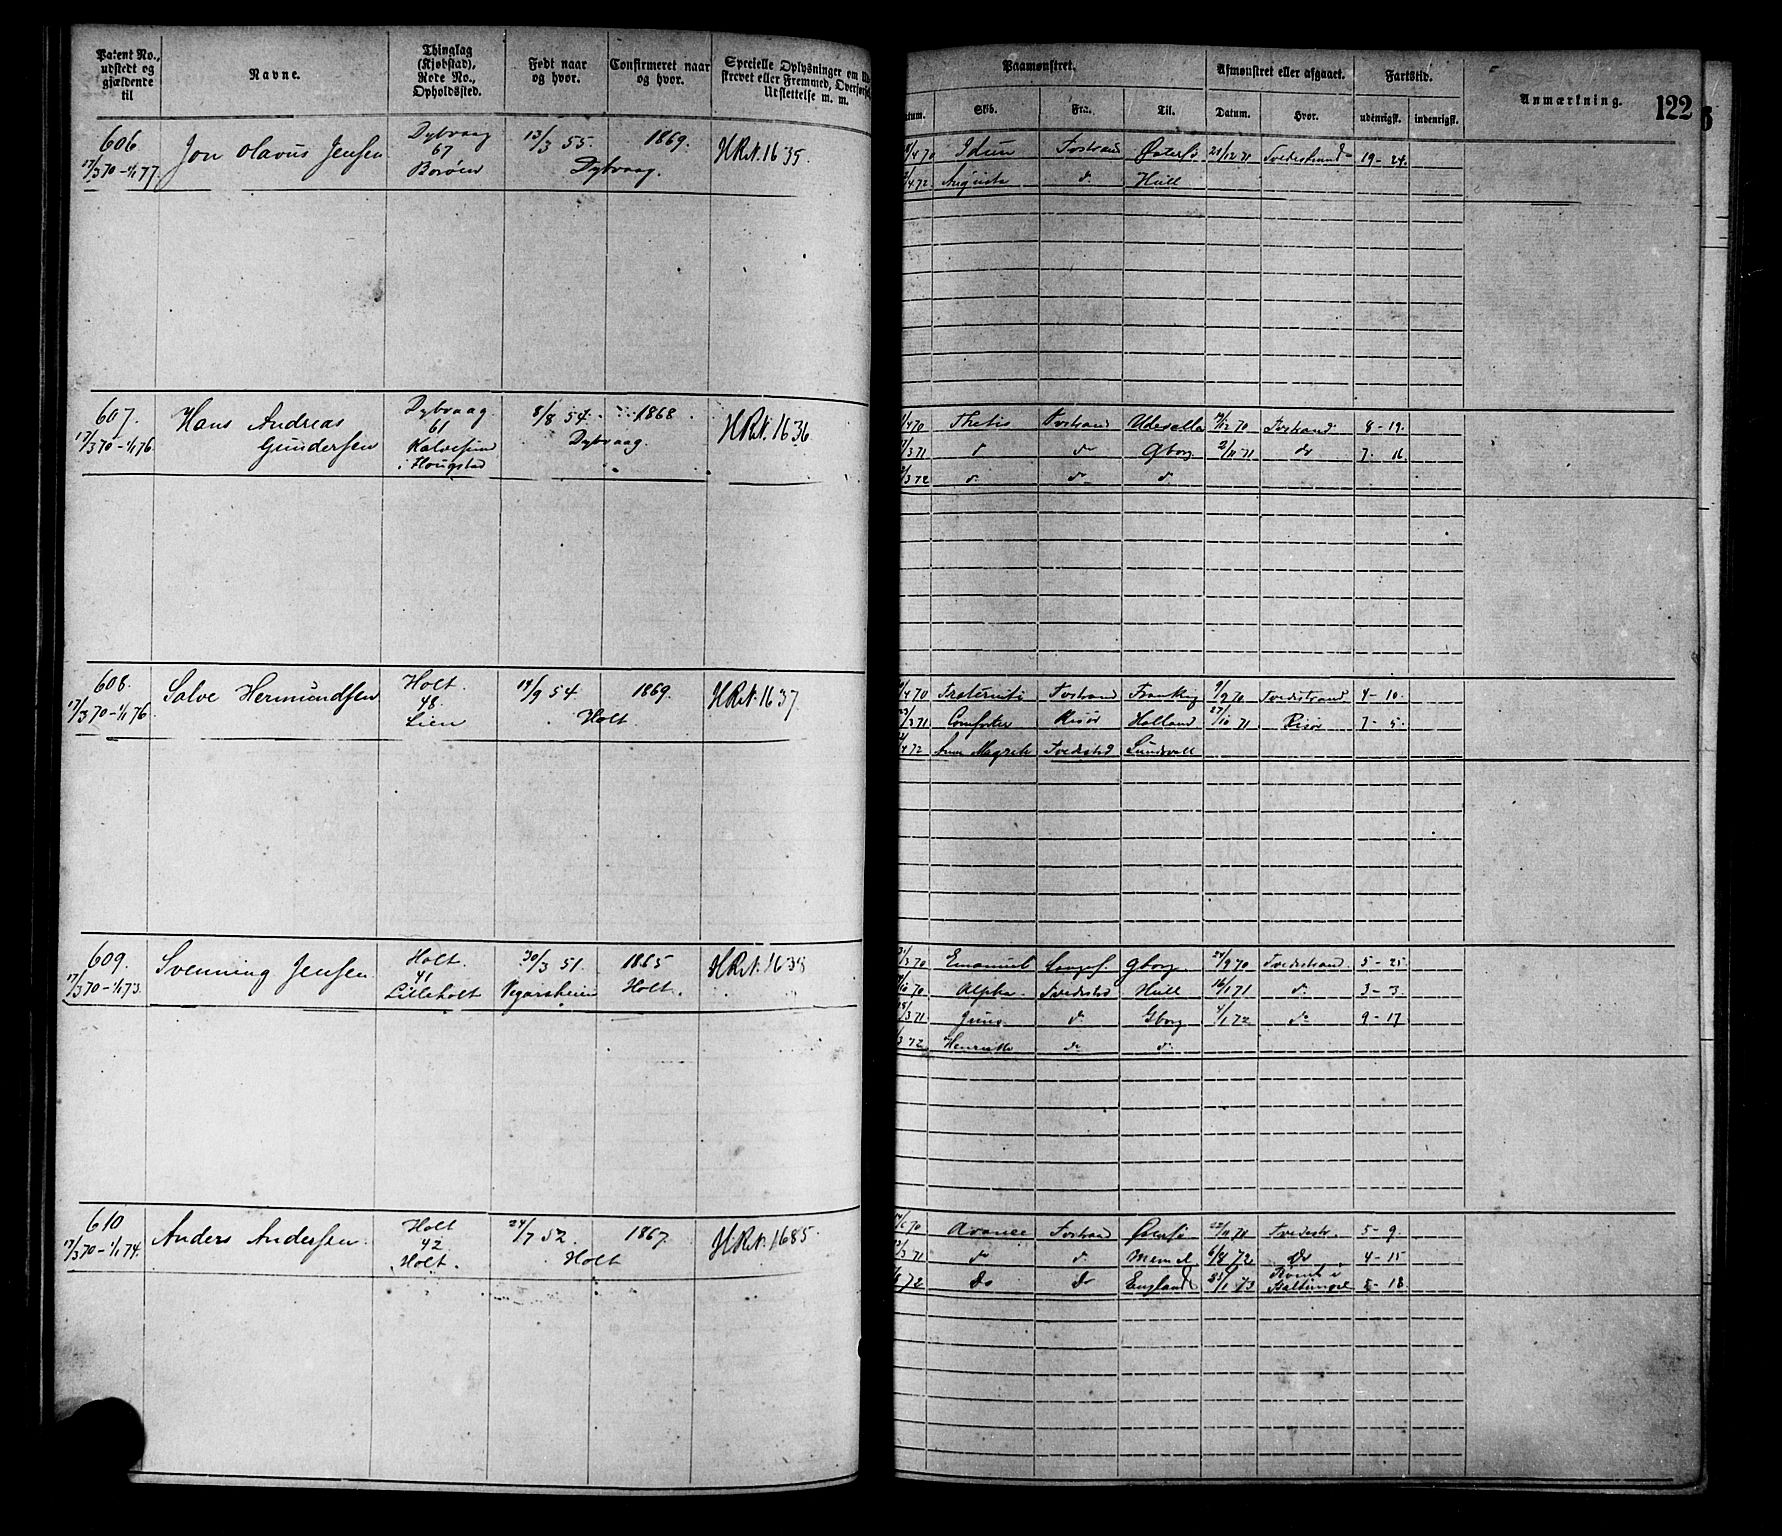 Patent No., udstedt og gjældende til
Navne.
Thinglag (Kjøbstad), Rode No., Opholdssted.
Født naar og hvor.
Confirmeret naar og hvor.
Specielle Oplysninger om
Udslettelse m. m.
Paamønstret.
Afmønstret eller afgaaet.
Fartstid.
Anmærkning.
122
Skib.
Fra.
Til.
Datum.
Hvor.
udenrigsk.
indenrigsk.
606
17/3 70 - 1/1 77.
Jon Olavus Jensen
Dybvaag
67
Borøen
13/3 55.
1869.
Dybvaag.
HRN. 1635.
4 70 Idun Østersø 71 19 - 24.
4 72 Augusta do Hull
607.
17/3 70 - 1/1 76.
Hans Andreas
Gundersen
Dybvaag
61
Kalvesund
i Flougstad
8/8 54.
1868
Dybvaag.
HRN. 1636
4 70 Thetis Tvstrand Udevalla 12 70 Tvstrand 8 - 19.
3 71 do do Gborg 2/11 71 do 7 - 16
3 72 do do do
608.
17/3 70 - 1/1 76.
Salve Hermundsen
Holt.
48.
Lien
14/9 54
1869.
Holt.
HRN. 1637
4 70 Tvstrand 9 70 Tvedestrand 4 - 10.
23/3 71 Risør Holland 27/10 71 Risør 7 - 5.
4 72 Tvedestrd Sundsvall
609.
17/3 70 - 1/1 73.
Svenning Jensen
Holt.
41
Lilleholt
30/3 51.
Vegarsheien
1865
Holt.
HRN. 1638
31/3 70 Emanuel Gborg. 24/9 70 Tvedestrand. 5 - 25.
10 70 Alpha. Tvedestrd Hull 16/1 71 do 3 - 3.
3 71 Juno do Gborg 4/1 72 do 9 - 17
3 72 Henriette do do
610
17/3 70 - 1/1 74.
Anders Andersen.
Holt
42
Holt.
24/7 52.
1867
Holt
HRN. 1685.
70 Avance Tvstrand Østersø 22/11 70 Tvedestr. 5 - 9.
3 71 do do Memel 6/8 72 Do 4 - 15
72 Do Do England 25/1 73 Rømt i 5 - 18.